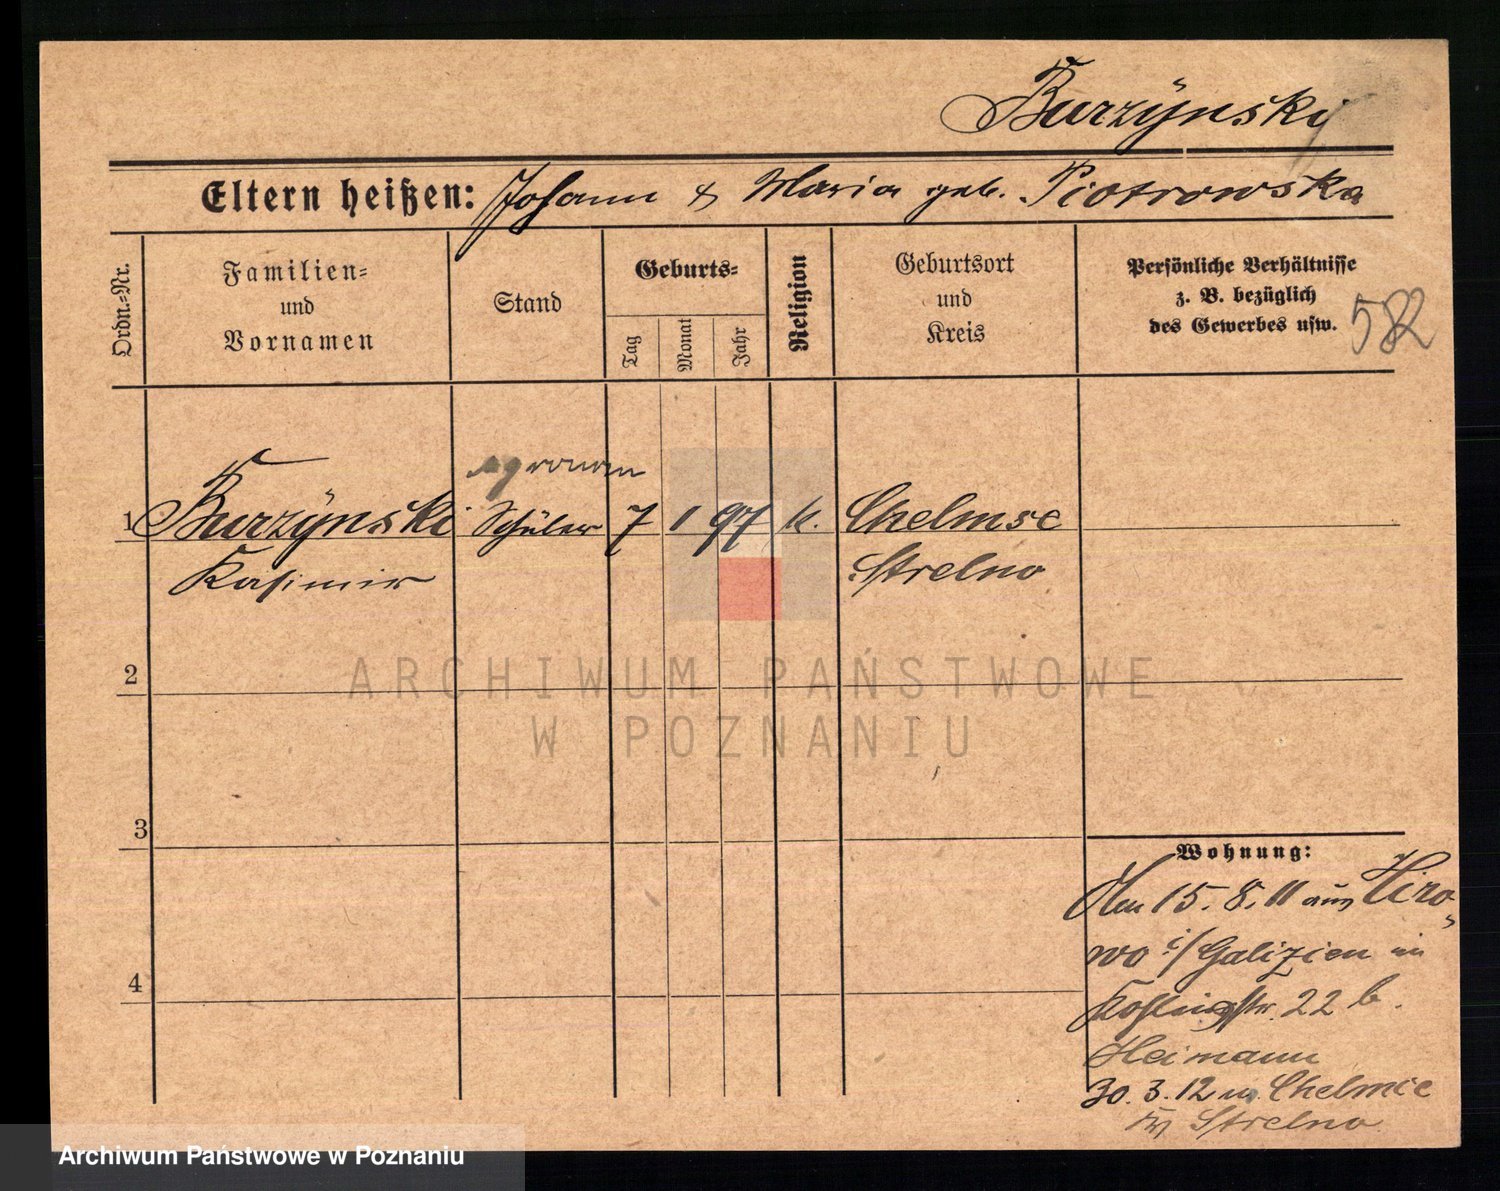 Burzÿnski
Eltern heißen: Johann & Maria geb. Piotrowska
Ordn.=Nr.
Familien=
und
Vornamen
Stand
Geburts=
Tag
Monat
Jahr
Religion
Geburtsort
und
Kreis
Persönliche Verhältnisse
z. B. bezüglich
des Gewerbes usw.
582
1 Burzÿnski Schüler 7 1 97 k. Chelmsc
Kasimir Strelno
2
3
4
Wohnung:
Am 15. 8. 11 aus
wo i/ Galizien in
22 b.
Heimann
30. 3. 12 n. Chelmce
Strelno
ARCHIWUM PAŃSTWOWE
W POZNANIU
Archiwum Państwowe w Poznaniu